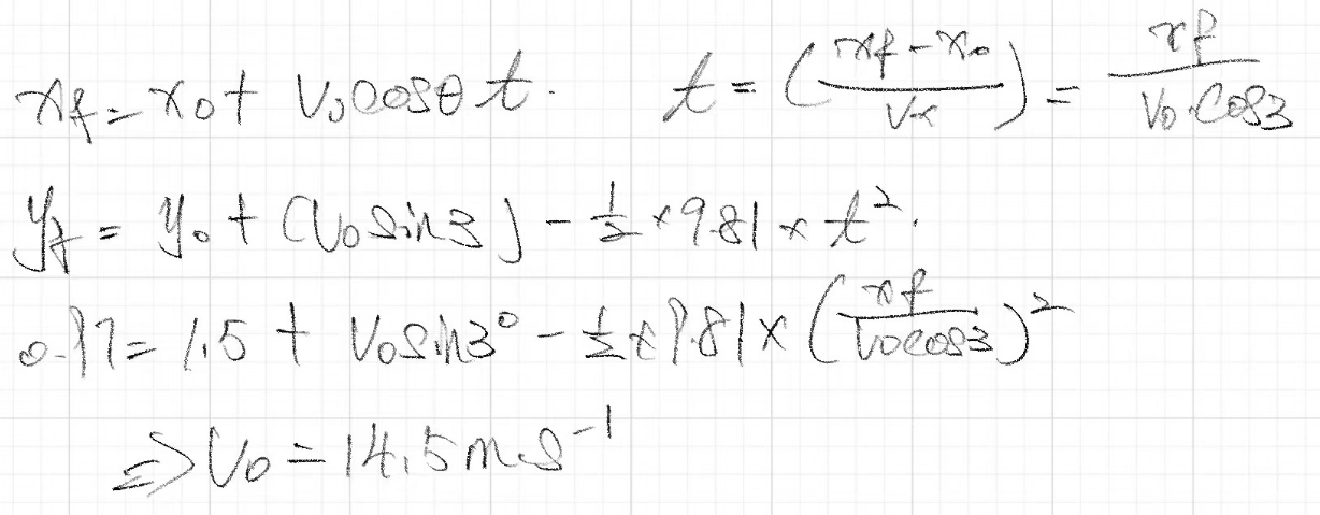 xf = x0 + V0cosθ t. t = (xf - x0 / Vx) = xf / V0.cos3
yf = y0 + (V0 sin3) - 1/2 × 9.81 × t².
0.97 = 1.5 + V0 sin3° - 1/2 × 9.81 × (xf / V0cos3)²
⇒ V0 = 14.5 m s⁻¹